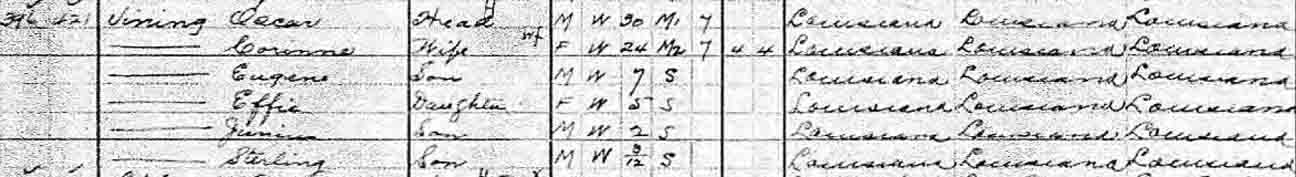 396 421 Vining Oscar Head M W 30 M1 7 Louisiana Louisiana Louisiana
Corinne Wife F W 24 M2 7 4 4 Louisiana Louisiana Louisiana
Eugene Son M W 7 S Louisiana Louisiana Louisiana
Effie Daughter F W 5 S Louisiana Louisiana Louisiana
Junius Son M W 2 S Louisiana Louisiana Louisiana
Sterling Son M W 9/12 S Louisiana Louisiana Louisiana